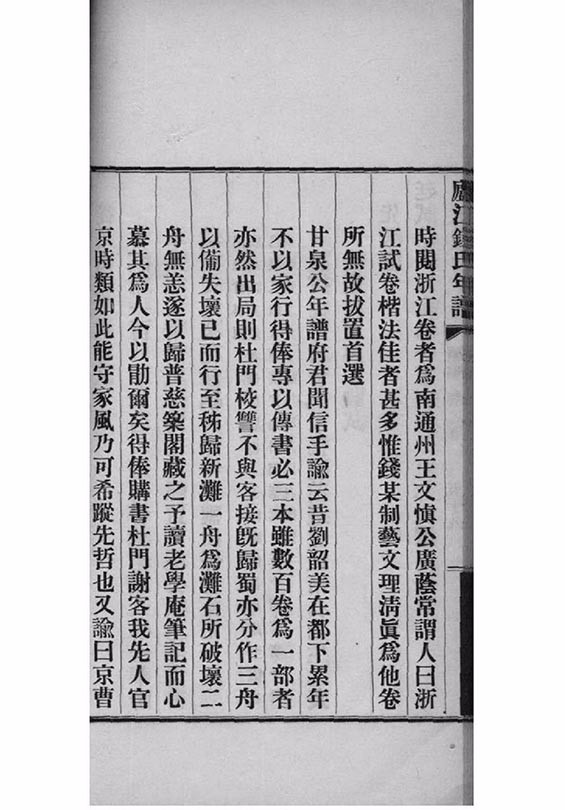 廬江錢氏年譜
時閱浙江卷者爲南通州王文愼公廣蔭常謂人曰浙
江試卷楷法佳者甚多惟錢某制藝文理淸眞爲他卷
所無故拔置首選
甘泉公年譜府君聞信手諭云昔劉韶美在都下累年
不以家行得俸專以傳書必三本雖數百卷爲一部者
亦然出局則杜門校讐不與客接旣歸蜀亦分作三舟
以備失壞已而行至秭歸新灘一舟爲灘石所破壞二
舟無恙遂以歸普慈築閣藏之予讀老學庵筆記而心
慕其爲人今以勖爾矣得俸購書杜門謝客我先人官
京時類如此能守家風乃可希蹤先哲也又諭曰京曹